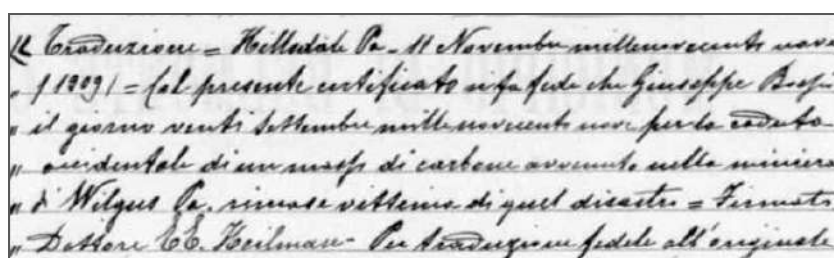 " Traduzione = Hillsdale Pa - 11 Novembre millenovecento nove
" (1909) = Col presente certificato si fa fede che Giuseppe
" il giorno venti Settembre millenovecento nove per la caduta
" accidentale di un masso di carbone avvenuta nella miniera
" di Wilgus Pa. rimase vittima di quel disastro = Firmato
" Dottore E. E. Heilman - Per traduzione fedele all'originale